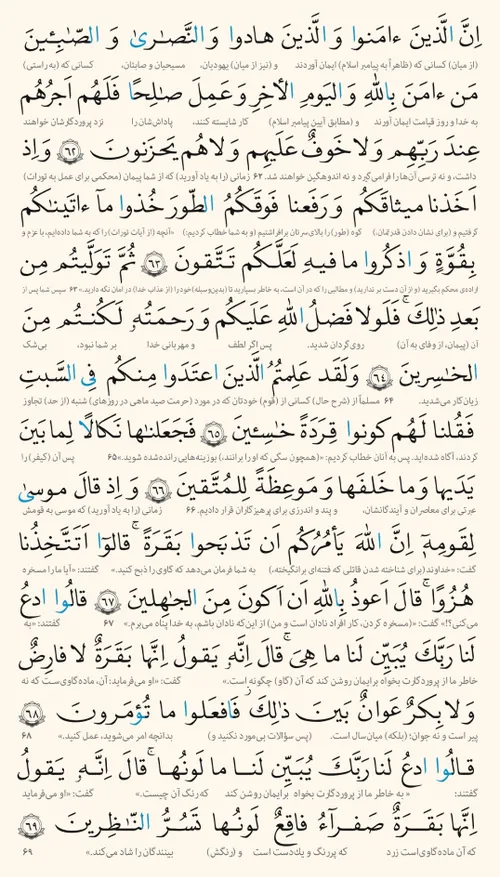 اِنَّ الَّذینَ ءامَنوا وَ الَّذینَ هادوا وَ النَّصـٰریٰ وَ الصّـٰبِـٔینَ
(از میان) کسانی که (ظاهراً به پیامبر اسلام) ایمان آوردند (و نیز از میان) یهودیان، مسیحیان و صابئان، کسانی که (به راستی)
مَن ءامَنَ بِاللهِ وَ الیَومِ الأخِرِ وَ عَمِلَ صـٰلِحًا فَلَهُم اَجرُهُم
به خدا و روز قیامت ایمان آورند و (مطابق آیین پیامبر اسلام) کار شایسته کنند، پاداش‌شان را نزد پروردگارشان خواهند
عِندَ رَبِّهِم وَ لا خَوفٌ عَلَیهِم وَ لا هُم یَحزَنونَ ﴿٦٢﴾ وَ اِذ
داشت، و نه ترسی آن‌ها را فرامی‌گیرد و نه اندوهگین خواهند شد. ۶۲ زمانی (را به یاد آورید) که از شما پیمان (محکمی برای عمل به تورات)
اَخَذنا میثاقَکُم وَ رَفَعنا فَوقَکُمُ الطّورَ خُذوا مآ ءاتَینـٰکُم
گرفتیم و (برای نشان دادن قدرتمان،) کوه (طور) را بالای سرتان برافراشتیم (و به شما خطاب کردیم:) «آنچه (از آیات تورات) را که به شما داده‌ایم، با عزم و
بِقُوَّةٍ وَ اذکُروا ما فیهِ لَعَلَّکُم تَتَّقونَ ﴿٦٣﴾ ثُمَّ تَوَلَّیتُم مِن
اراده‌ی محکم بگیرید (و از آن دست بر ندارید) و مطالبی را که در آن است، به خاطر بسپارید تا (بدین‌وسیله) خود را (از عذاب خدا) در امان نگه دارید.» ۶۳ سپس شما پس از
بَعدِ ذٰلِکَ ۚ فَلَولا فَضلُ اللهِ عَلَیکُم وَ رَحمَتُهُ لَکُنتُم مِنَ
آن (پیمان، از وفای به آن) روی‌گردان شدید. پس اگر لطف و مهربانی خدا بر شما نبود، بی‌شک
الخـٰسِرینَ ﴿٦٤﴾ وَ لَقَد عَلِمتُمُ الَّذینَ اعتَدَوا مِنکُم فِی السَّبتِ
زیان‌کار می‌شدید. ۶۴ مسلماً از (شرح حال) کسانی از (قوم) خودتان که در مورد (حرمت صید ماهی در روزهای) شنبه (از حد) تجاوز
فَقُلنا لَهُم کونوا قِرَدَةً خـٰسِـٔینَ ﴿٦٥﴾ فَجَعَلنـٰها نَکالًا لِما بَینَ
کردند، آگاه شده‌اید. پس به آنان خطاب کردیم: «(همچون سگی که او را برانند،) بوزینه‌هایی رانده‌شده شوید.» ۶۵ پس آن (کیفر) را
یَدَیها وَ ما خَلفَها وَ مَوعِظَةً لِلمُتَّقینَ ﴿٦٦﴾ وَ اِذ قالَ موسیٰ
عبرتی برای معاصران و آیندگانشان، و پند و اندرزی برای پرهیزگاران قرار دادیم. ۶۶ زمانی (را به یاد آورید) که موسی به قومش
لِقَومِهٓ اِنَّ اللهَ یَأمُرُکُم اَن تَذبَحوا بَقَرَةً ۖ قالوٓا اَتَتَّخِذُنا
گفت: «خداوند (برای شناخته شدن قاتلی که فتنه‌ای برانگیخته،) به شما فرمان می‌دهد که گاوی را ذبح کنید.» گفتند: «آیا ما را مسخره
هُزُوًا ۖ قالَ اَعوذُ بِاللهِ اَن اَکونَ مِنَ الجـٰهِلینَ ﴿٦٧﴾ قالُوا ادعُ
می‌کنی؟!» گفت: «(مسخره کردن، کار افراد نادان است و من) از این‌که نادان باشم، به خدا پناه می‌برم.» ۶۷ گفتند: «به
لَنا رَبَّکَ یُبَیِّن لَنا ما هِیَ ۚ قالَ اِنَّهُ یَقولُ اِنَّها بَقَرَةٌ لا فارِضٌ
خاطر ما از پروردگارت بخواه برایمان روشن کند که آن (گاو) چگونه است.» گفت: «او می‌فرماید: آن، ماده‌گاوی‌ست که نه
وَ لا بِکرٌ عَوانٌ بَینَ ذٰلِکَ ۖ فَافعَلوا ما تُؤمَرونَ ﴿٦٨﴾
پیر است و نه جوان؛ (بلکه) میان‌سال است. (پس سؤالات بی‌مورد نکنید و) بدانچه امر می‌شوید، عمل کنید.» ۶۸
قالُوا ادعُ لَنا رَبَّکَ یُبَیِّن لَنـا ما لَونُهـا ۚ قالَ اِنَّـهُ یَـقولُ
گفتند: «به خاطر ما از پروردگارت بخواه برایمان روشن کند که رنگ آن چیست.» گفت: «او می‌فرماید
اِنَّها بَقَـرَةٌ صَفـرآءُ فاقِعٌ لَونُـها تَسُرُّ النّـٰظِرینَ ﴿٦٩﴾
که آن ماده‌گاوی‌است زرد که پررنگ و یک‌دست است و (رنگش) بینندگان را شاد می‌کند.» ۶۹